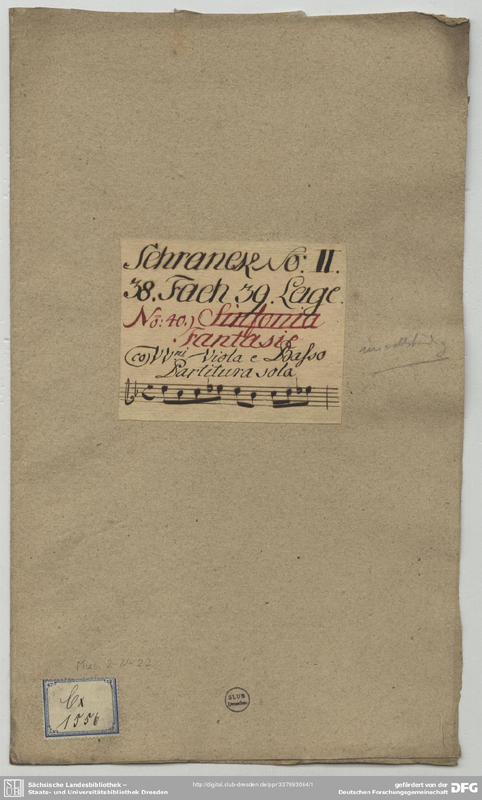 Schranck No: II.
38. Fach 39. Lage.
No: 40.) Sinfonia
Fantasie
(co) VVni Viola e Basso
Partitura sola
unvollständig
Mus. 2-N-22
Cx
1556
SLUB
Dresden
SLUB
Sächsische Landesbibliothek –
Staats- und Universitätsbibliothek Dresden
http://digital.slub-dresden.de/ppn337993064/1
gefördert von der
Deutschen Forschungsgemeinschaft
DFG